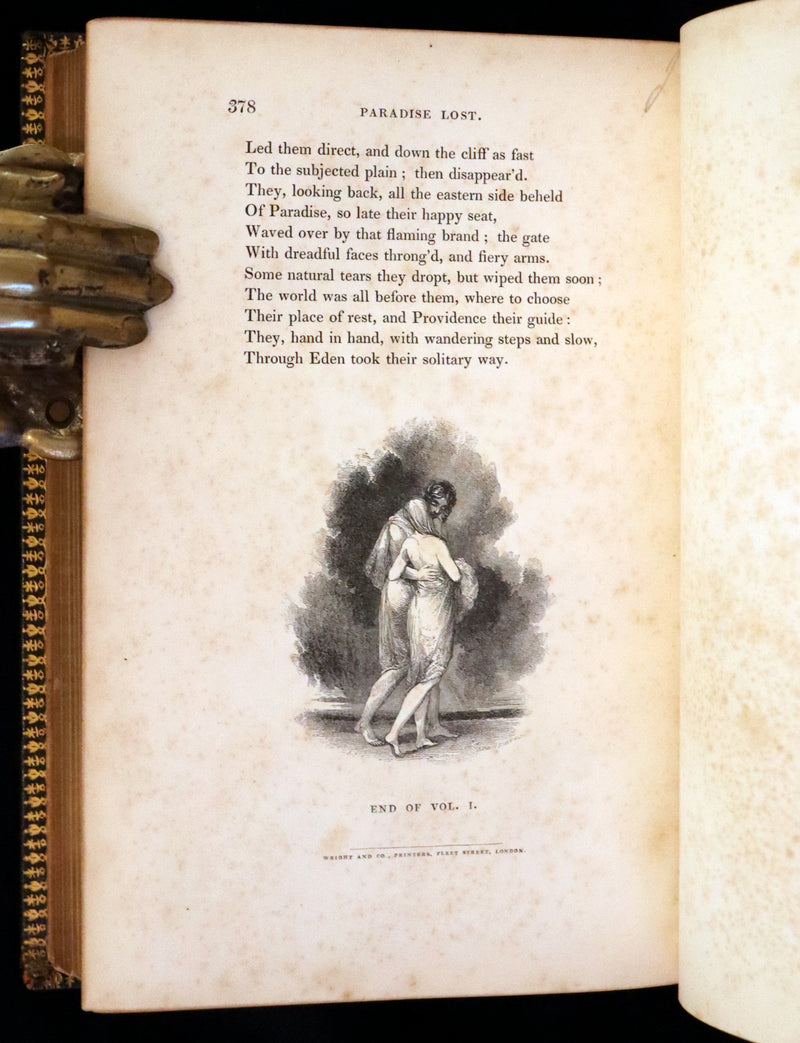 378
PARADISE LOST.
Led them direct, and down the cliff as fast
To the subjected plain ; then disappear'd.
They, looking back, all the eastern side beheld
Of Paradise, so late their happy seat,
Waved over by that flaming brand ; the gate
With dreadful faces throng'd, and fiery arms.
Some natural tears they dropt, but wiped them soon ;
The world was all before them, where to choose
Their place of rest, and Providence their guide :
They, hand in hand, with wandering steps and slow,
Through Eden took their solitary way.
END OF VOL. I.
WRIGHT AND CO., PRINTERS, FLEET STREET, LONDON.